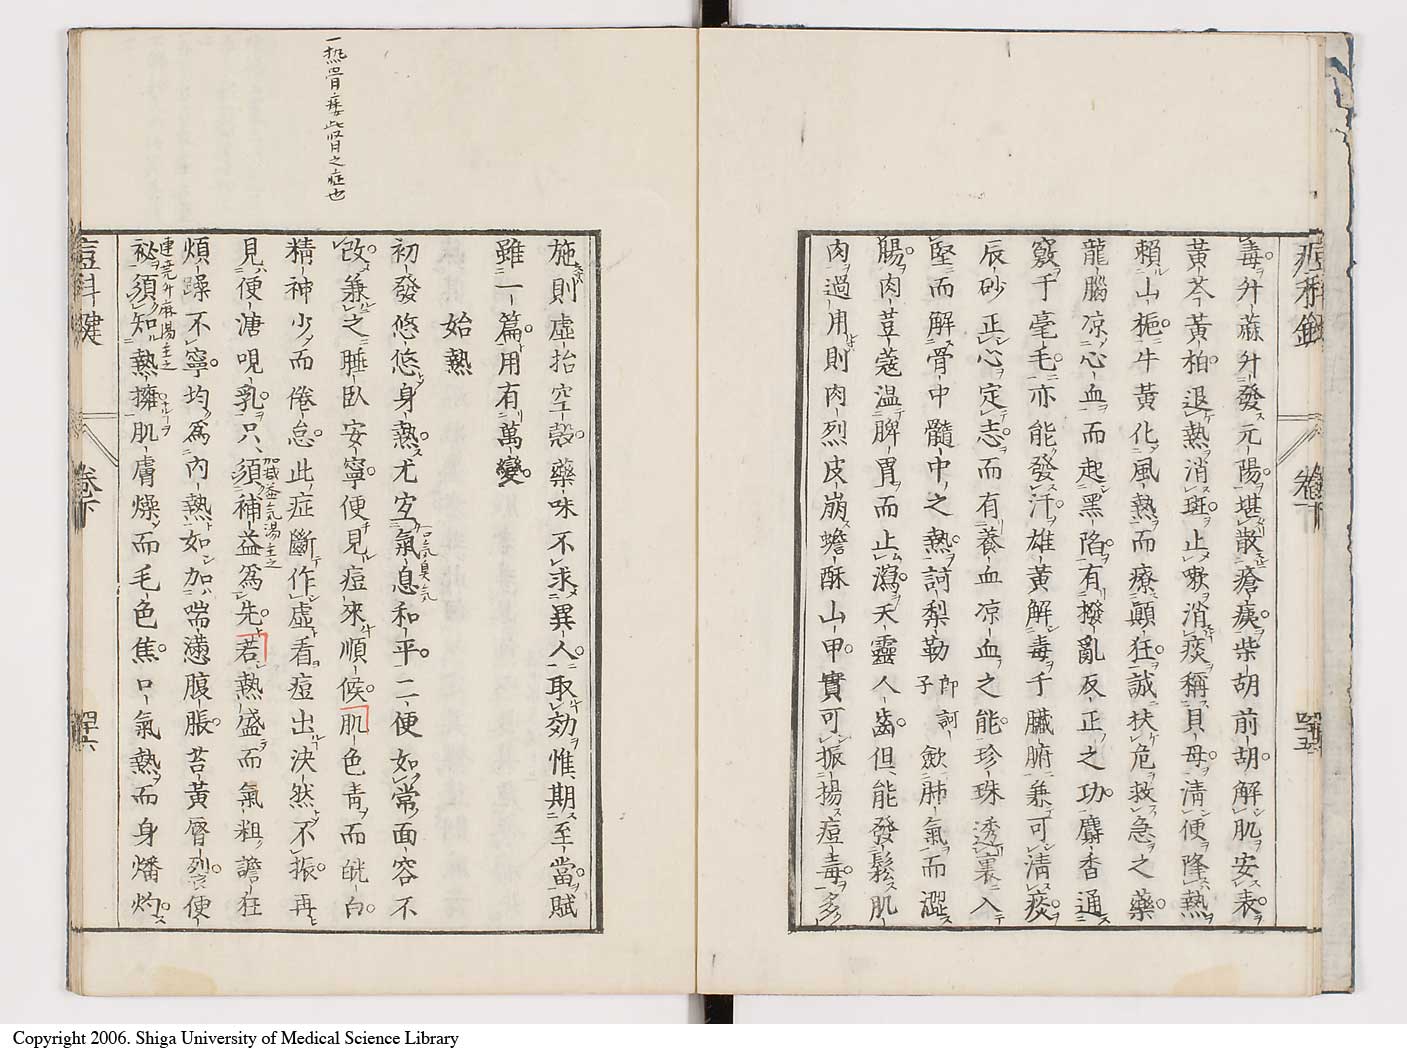 毒升蔴升發元陽堪散瘡痍柴胡前胡解肌安表
黃芩黃柏退熱消斑止嗽消痰稱貝母清便降熱
賴山梔牛黃化風熱而療顚狂誠扶危救急之藥
龍腦凉心血而起黑陷有撥亂反正之功麝香通
竅于毫毛亦能發汗雄黃解毒于臟腑兼可清痰
辰砂正心定志而有養血凉血之能珍珠透裏入
堅而解骨中髓中之熱訶梨勒 卽訶子 歛肺氣而澀
腸肉荳蔲温脾胃而止瀉天靈人齒但能發鬆肌
肉過用則肉烈皮崩蟾酥山甲實可振揚痘毒多
施則虛抬空殼藥味不求異人取効惟期至當賦
雖一篇用有萬變
始熱
初發悠悠身熱尤安氣息和平二便如常面容不
改兼之睡臥安寧便見痘來順候肌色青而㿠白
精神少而倦怠此症斷作虛看痘出決然不振再
見便溏吮乳只須補益爲先若熱盛而氣粗譫狂
加減益氣湯主之
煩躁不寧均爲內熱如加喘懣腹脹苔黃唇裂便
祕須知熱擁肌膚燥而毛色焦口氣熱而身燔灼
連堯升麻湯主之
一热骨痿此腎之症也
痘科鍵
卷下
四十五
痘科鍵
卷下
四十六
Copyright 2006. Shiga University of Medical Science Library